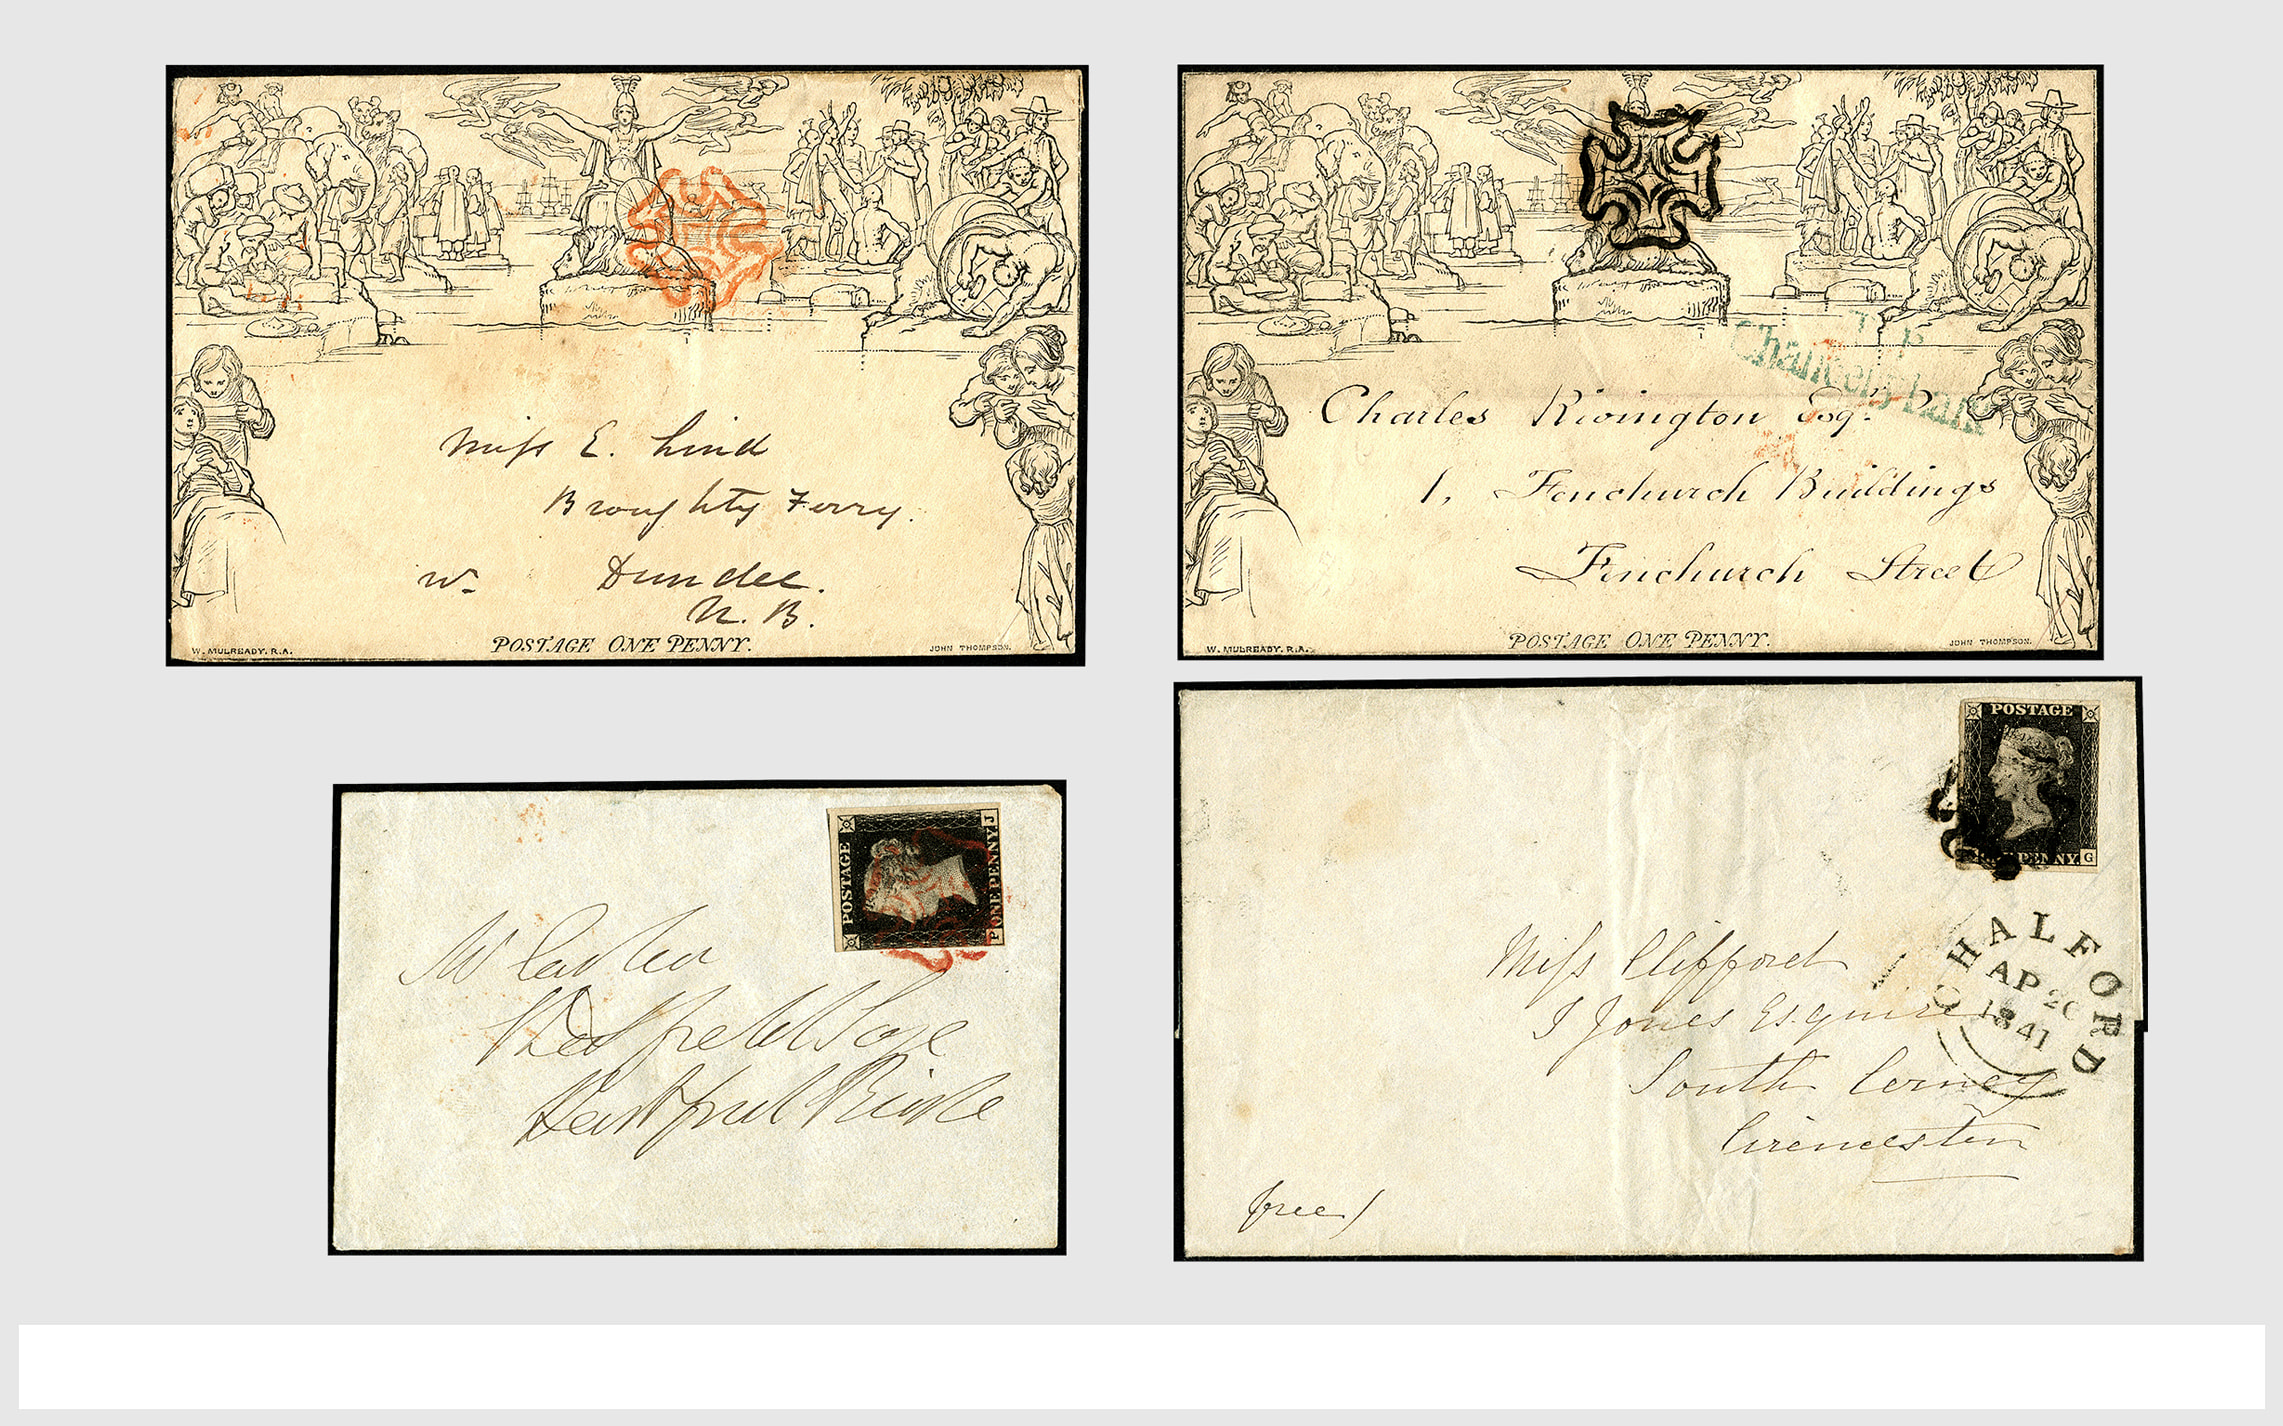 Miss E. Lind
Broughty Ferry.
Dundee.
N. B.
POSTAGE ONE PENNY.
W. MULREADY. R.A.
JOHN THOMPSON.
T. P
Chancery Lane
Charles Rivington Esqr.
1, Fenchurch Buildings
Fenchurch Street
POSTAGE ONE PENNY.
W. MULREADY. R.A.
JOHN THOMPSON.
POSTAGE
ONE PENNY
P J
POSTAGE
PENNY
G
CHALFORD
AP 20
1841
Miss Clifford
J Jones Esquire
South Cerney
Cirencester
free